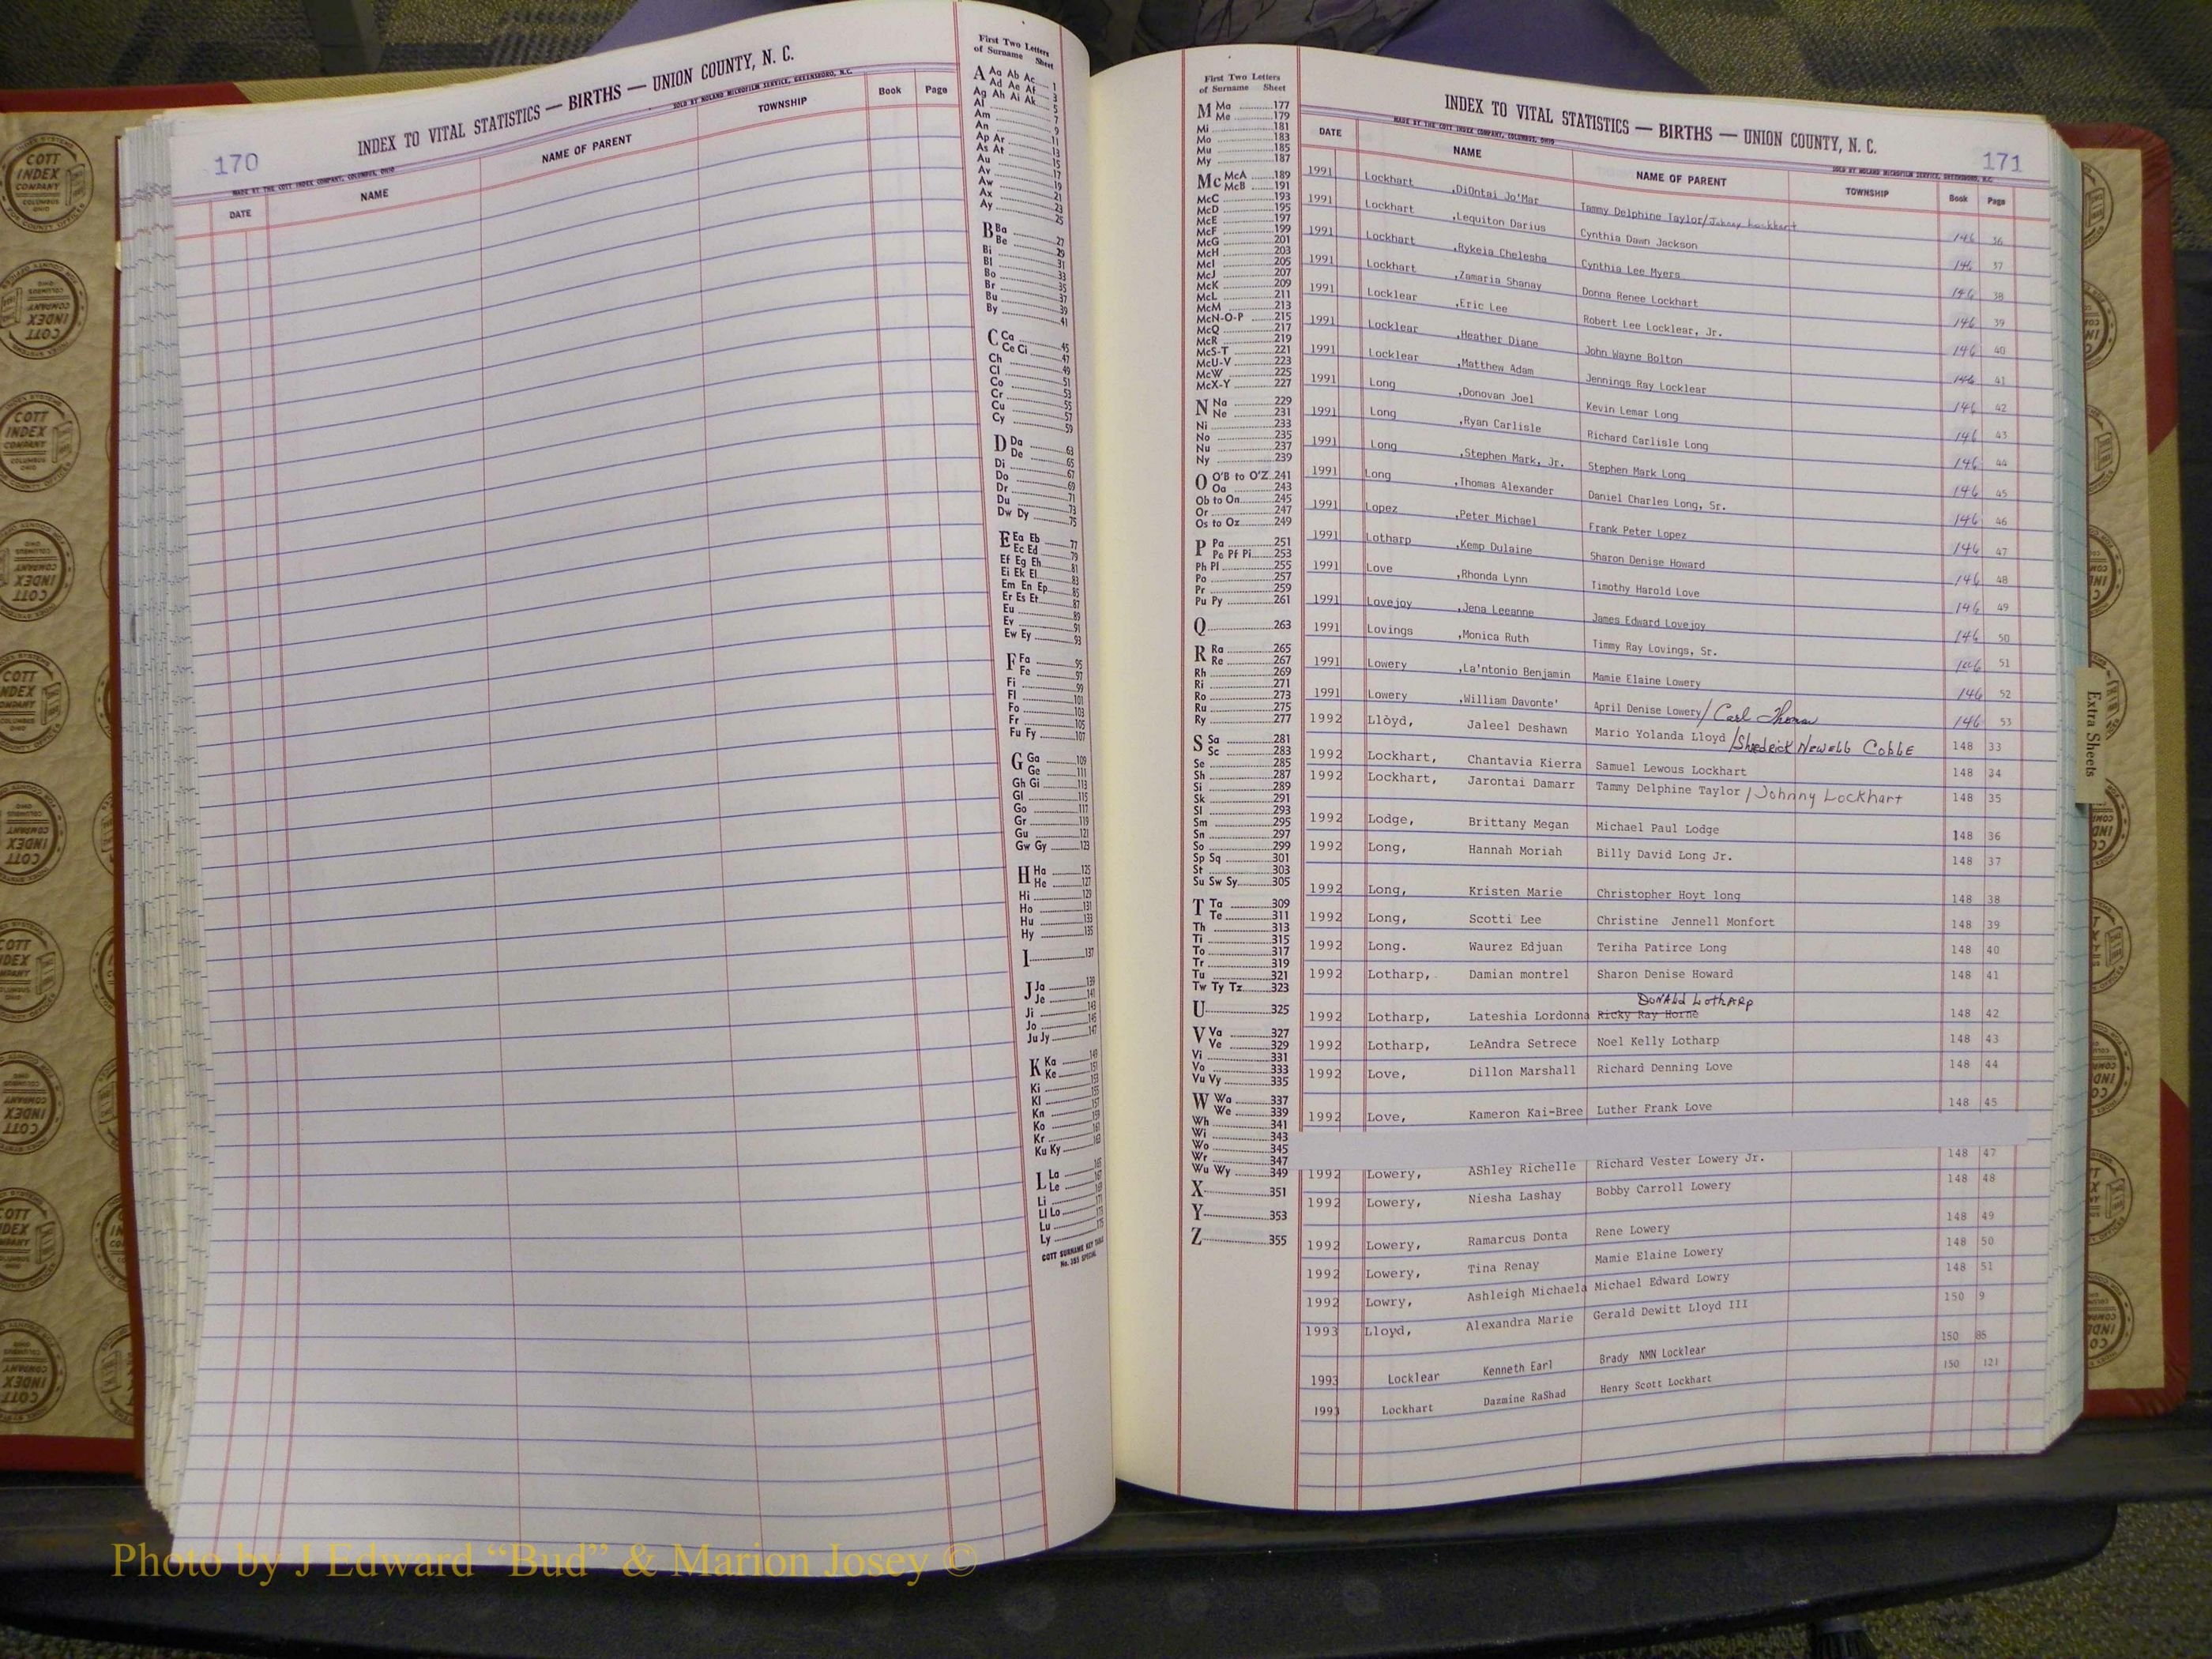 170
INDEX TO VITAL STATISTICS — BIRTHS — UNION COUNTY, N. C.
MADE BY THE COTT INDEX COMPANY, COLUMBUS, OHIO
SOLD BY NOLAND MICROFILM SERVICE, GREENSBORO, N.C.
DATE NAME NAME OF PARENT TOWNSHIP Book Page
First Two Letters
of Surname Sheet
A Aa Ab Ac 1
Ad Ae Af 3
Ag Ah Ai Ak 5
Al 7
Am 9
An 11
Ap Ar 13
As At 15
Au 17
Av 19
Aw 21
Ax 23
Ay 25
B Ba 27
Be 29
Bi 31
Bl 33
Bo 35
Br 37
Bu 39
By 41
C Ca 45
Ce Ci 47
Ch 49
Cl 51
Co 53
Cr 55
Cu 57
Cy 59
D Da 63
De 65
Di 67
Do 69
Dr 71
Du 73
Dw Dy 75
E Ea Eb 77
Ec Ed 79
Ef Eg Eh 81
Ei Ek El 83
Em En Ep 85
Er Es Et 87
Eu 89
Ev 91
Ew Ey 93
F Fa 95
Fe 97
Fi 99
Fl 101
Fo 103
Fr 105
Fu Fy 107
G Ga 109
Ge 111
Gh Gi 113
Gl 115
Go 117
Gr 119
Gu 121
Gw Gy 123
H Ha 125
He 127
Hi 129
Ho 131
Hu 133
Hy 135
I 137
J Ja 139
Je 141
Ji 143
Jo 145
Ju Jy 147
K Ka 149
Ke 151
Ki 153
Kl 155
Kn 157
Ko 159
Kr 161
Ku Ky 163
L La 165
Le 167
Li 169
Ll Lo 171
Lu 173
Ly 175
COTT SURNAME KEY TABLE
No. 353 SPECIAL
First Two Letters
of Surname Sheet
M Ma 177
Me 179
Mi 181
Mo 183
Mu 185
My 187
Mc McA 189
McB 191
McC 193
McD 195
McE 197
McF 199
McG 201
McH 203
McI 205
McJ 207
McK 209
McL 211
McM 213
McN-O-P 215
McQ 217
McR 219
McS-T 221
McU-V 223
McW 225
McX-Y 227
N Na 229
Ne 231
Ni 233
No 235
Nu 237
Ny 239
O O'B to O'Z 241
Oa 243
Ob to On 245
Or 247
Os to Oz 249
P Pa 251
Pe Pf Pi 253
Ph Pl 255
Po 257
Pr 259
Pu Py 261
Q 263
R Ra 265
Re 267
Rh 269
Ri 271
Ro 273
Ru 275
Ry 277
S Sa 281
Sc 283
Se 285
Sh 287
Si 289
Sk 291
Sl 293
Sm 295
Sn 297
So 299
Sp Sq 301
St 303
Su Sw Sy 305
T Ta 309
Te 311
Th 313
Ti 315
To 317
Tr 319
Tu 321
Tw Ty Tz 323
U 325
V Va 327
Ve 329
Vi 331
Vo 333
Vu Vy 335
W Wa 337
We 339
Wh 341
Wi 343
Wo 345
Wr 347
Wu Wy 349
X 351
Y 353
Z 355
INDEX TO VITAL STATISTICS — BIRTHS — UNION COUNTY, N. C.
171
MADE BY THE COTT INDEX COMPANY, COLUMBUS, OHIO
SOLD BY NOLAND MICROFILM SERVICE, GREENSBORO, N.C.
DATE NAME NAME OF PARENT TOWNSHIP Book Page
1991 Lockhart ,DiOntai Jo'Mar Tammy Delphine Taylor/Johnny Lockhart 146 36
1991 Lockhart ,Lequiton Darius Cynthia Dawn Jackson 146 37
1991 Lockhart ,Rykeia Chelesha Cynthia Lee Myers 146 38
1991 Lockhart ,Zamaria Shanay Donna Renee Lockhart 146 39
1991 Locklear ,Eric Lee Robert Lee Locklear, Jr. 146 40
1991 Locklear ,Heather Diane John Wayne Bolton 146 41
1991 Locklear ,Matthew Adam Jennings Ray Locklear 146 42
1991 Long ,Donovan Joel Kevin Lemar Long 146 43
1991 Long ,Ryan Carlisle Richard Carlisle Long 146 44
1991 Long ,Stephen Mark, Jr. Stephen Mark Long 146 45
1991 Long ,Thomas Alexander Daniel Charles Long, Sr. 146 46
1991 Lopez ,Peter Michael Frank Peter Lopez 146 47
1991 Lotharp ,Kemp Dulaine Sharon Denise Howard 146 48
1991 Love ,Rhonda Lynn Timothy Harold Love 146 49
1991 Lovejoy ,Jena Leeanne James Edward Lovejoy 146 50
1991 Lovings ,Monica Ruth Timmy Ray Lovings, Sr. 146 51
1991 Lowery ,La'ntonio Benjamin Mamie Elaine Lowery 146 52
1991 Lowery ,William Davonte' April Denise Lowery/Carl Thomas 146 53
1992 Lloyd, Jaleel Deshawn Mario Yolanda Lloyd /Shedrick Newell Coble 148 33
1992 Lockhart, Chantavia Kierra Samuel Lewous Lockhart 148 34
1992 Lockhart, Jarontai Damarr Tammy Delphine Taylor /Johnny Lockhart 148 35
1992 Lodge, Brittany Megan Michael Paul Lodge 148 36
1992 Long, Hannah Moriah Billy David Long Jr. 148 37
1992 Long, Kristen Marie Christopher Hoyt long 148 38
1992 Long, Scotti Lee Christine Jennell Monfort 148 39
1992 Long. Waurez Edjuan Teriha Patirce Long 148 40
1992 Lotharp, Damian montrel Sharon Denise Howard 148 41
DONAld LothARp
1992 Lotharp, Lateshia Lordonna Ricky Ray Horne 148 42
1992 Lotharp, LeAndra Setrece Noel Kelly Lotharp 148 43
1992 Love, Dillon Marshall Richard Denning Love 148 44
1992 Love, Kameron Kai-Bree Luther Frank Love 148 45
1992 Lowery, AShley Richelle Richard Vester Lowery Jr. 148 47
1992 Lowery, Niesha Lashay Bobby Carroll Lowery 148 48
1992 Lowery, Ramarcus Donta Rene Lowery 148 49
1992 Lowery, Tina Renay Mamie Elaine Lowery 148 50
1992 Lowry, Ashleigh Michaela Michael Edward Lowry 148 51
1993 Lloyd, Alexandra Marie Gerald Dewitt Lloyd III 150 9
1993 Locklear Kenneth Earl Brady NMN Locklear 150 85
1993 Lockhart Dazmine RaShad Henry Scott Lockhart 150 121
Extra Sheets
COTT
INDEX
COMPANY
COLUMBUS
OHIO
Photo by J Edward “Bud” & Marion Josey ©